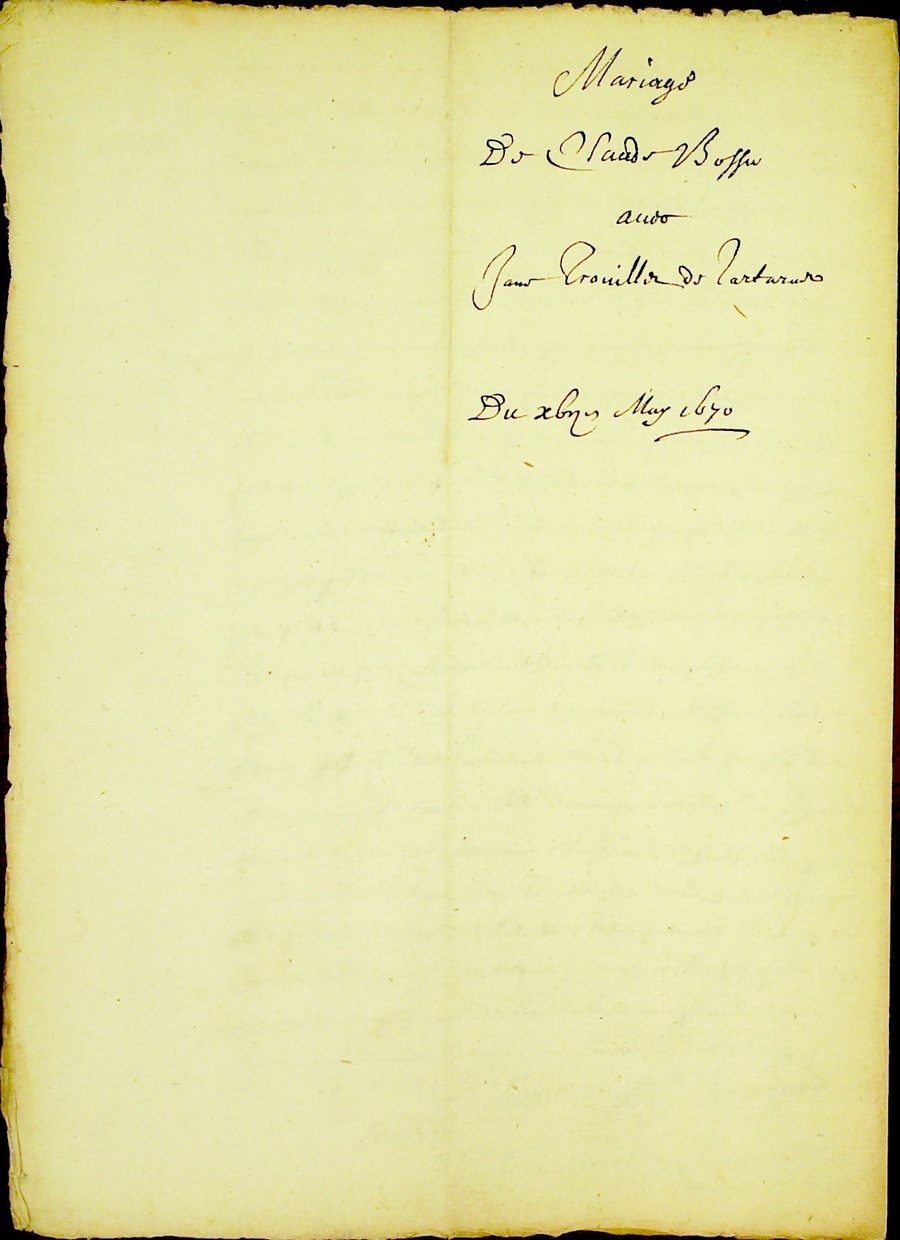 Mariage
De Claude Bossu
avec
Jane Trouillet de Tartaras
Du xbije May 1670